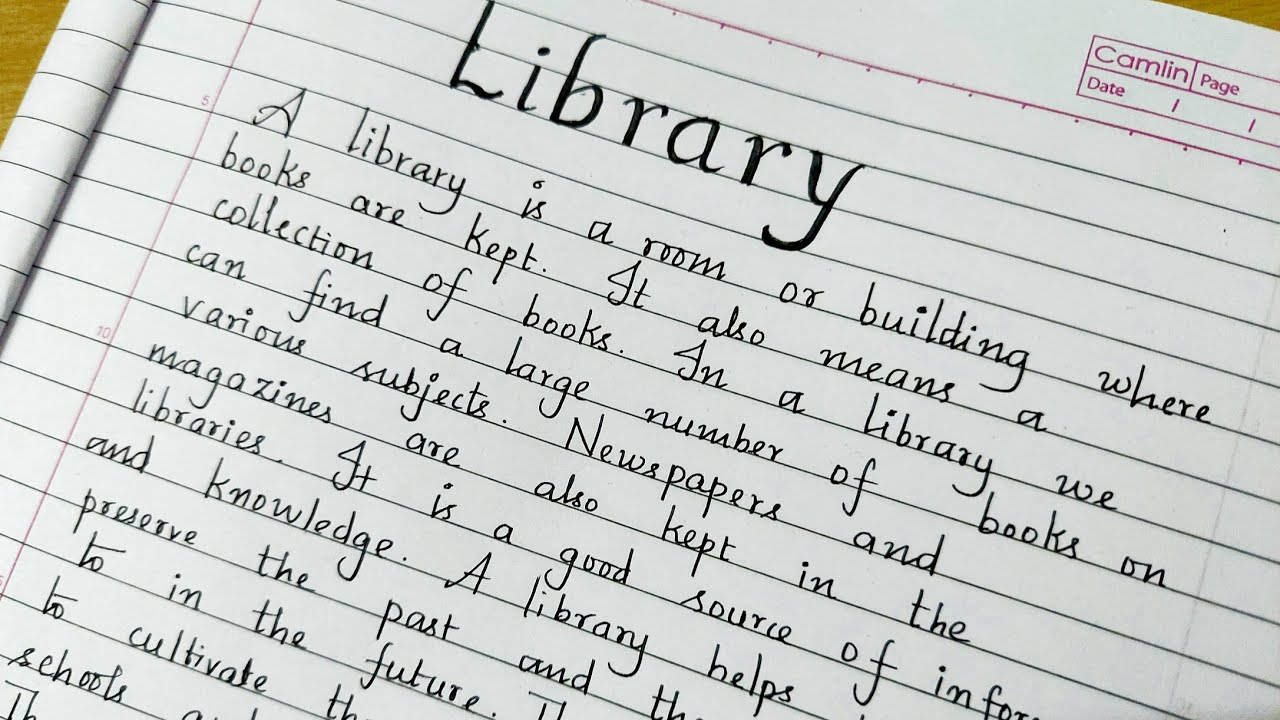 Library
Camlin Page
Date / /
5
A library is a room or building where
books are kept. It also means a
collection of books. In a library we
can find a large number of books on
various subjects. Newspapers and
10
magazines are also kept in the
libraries. It is a good source of infor
and knowledge. A library helps
preserve the past and
to in the future.
to cultivate
schools